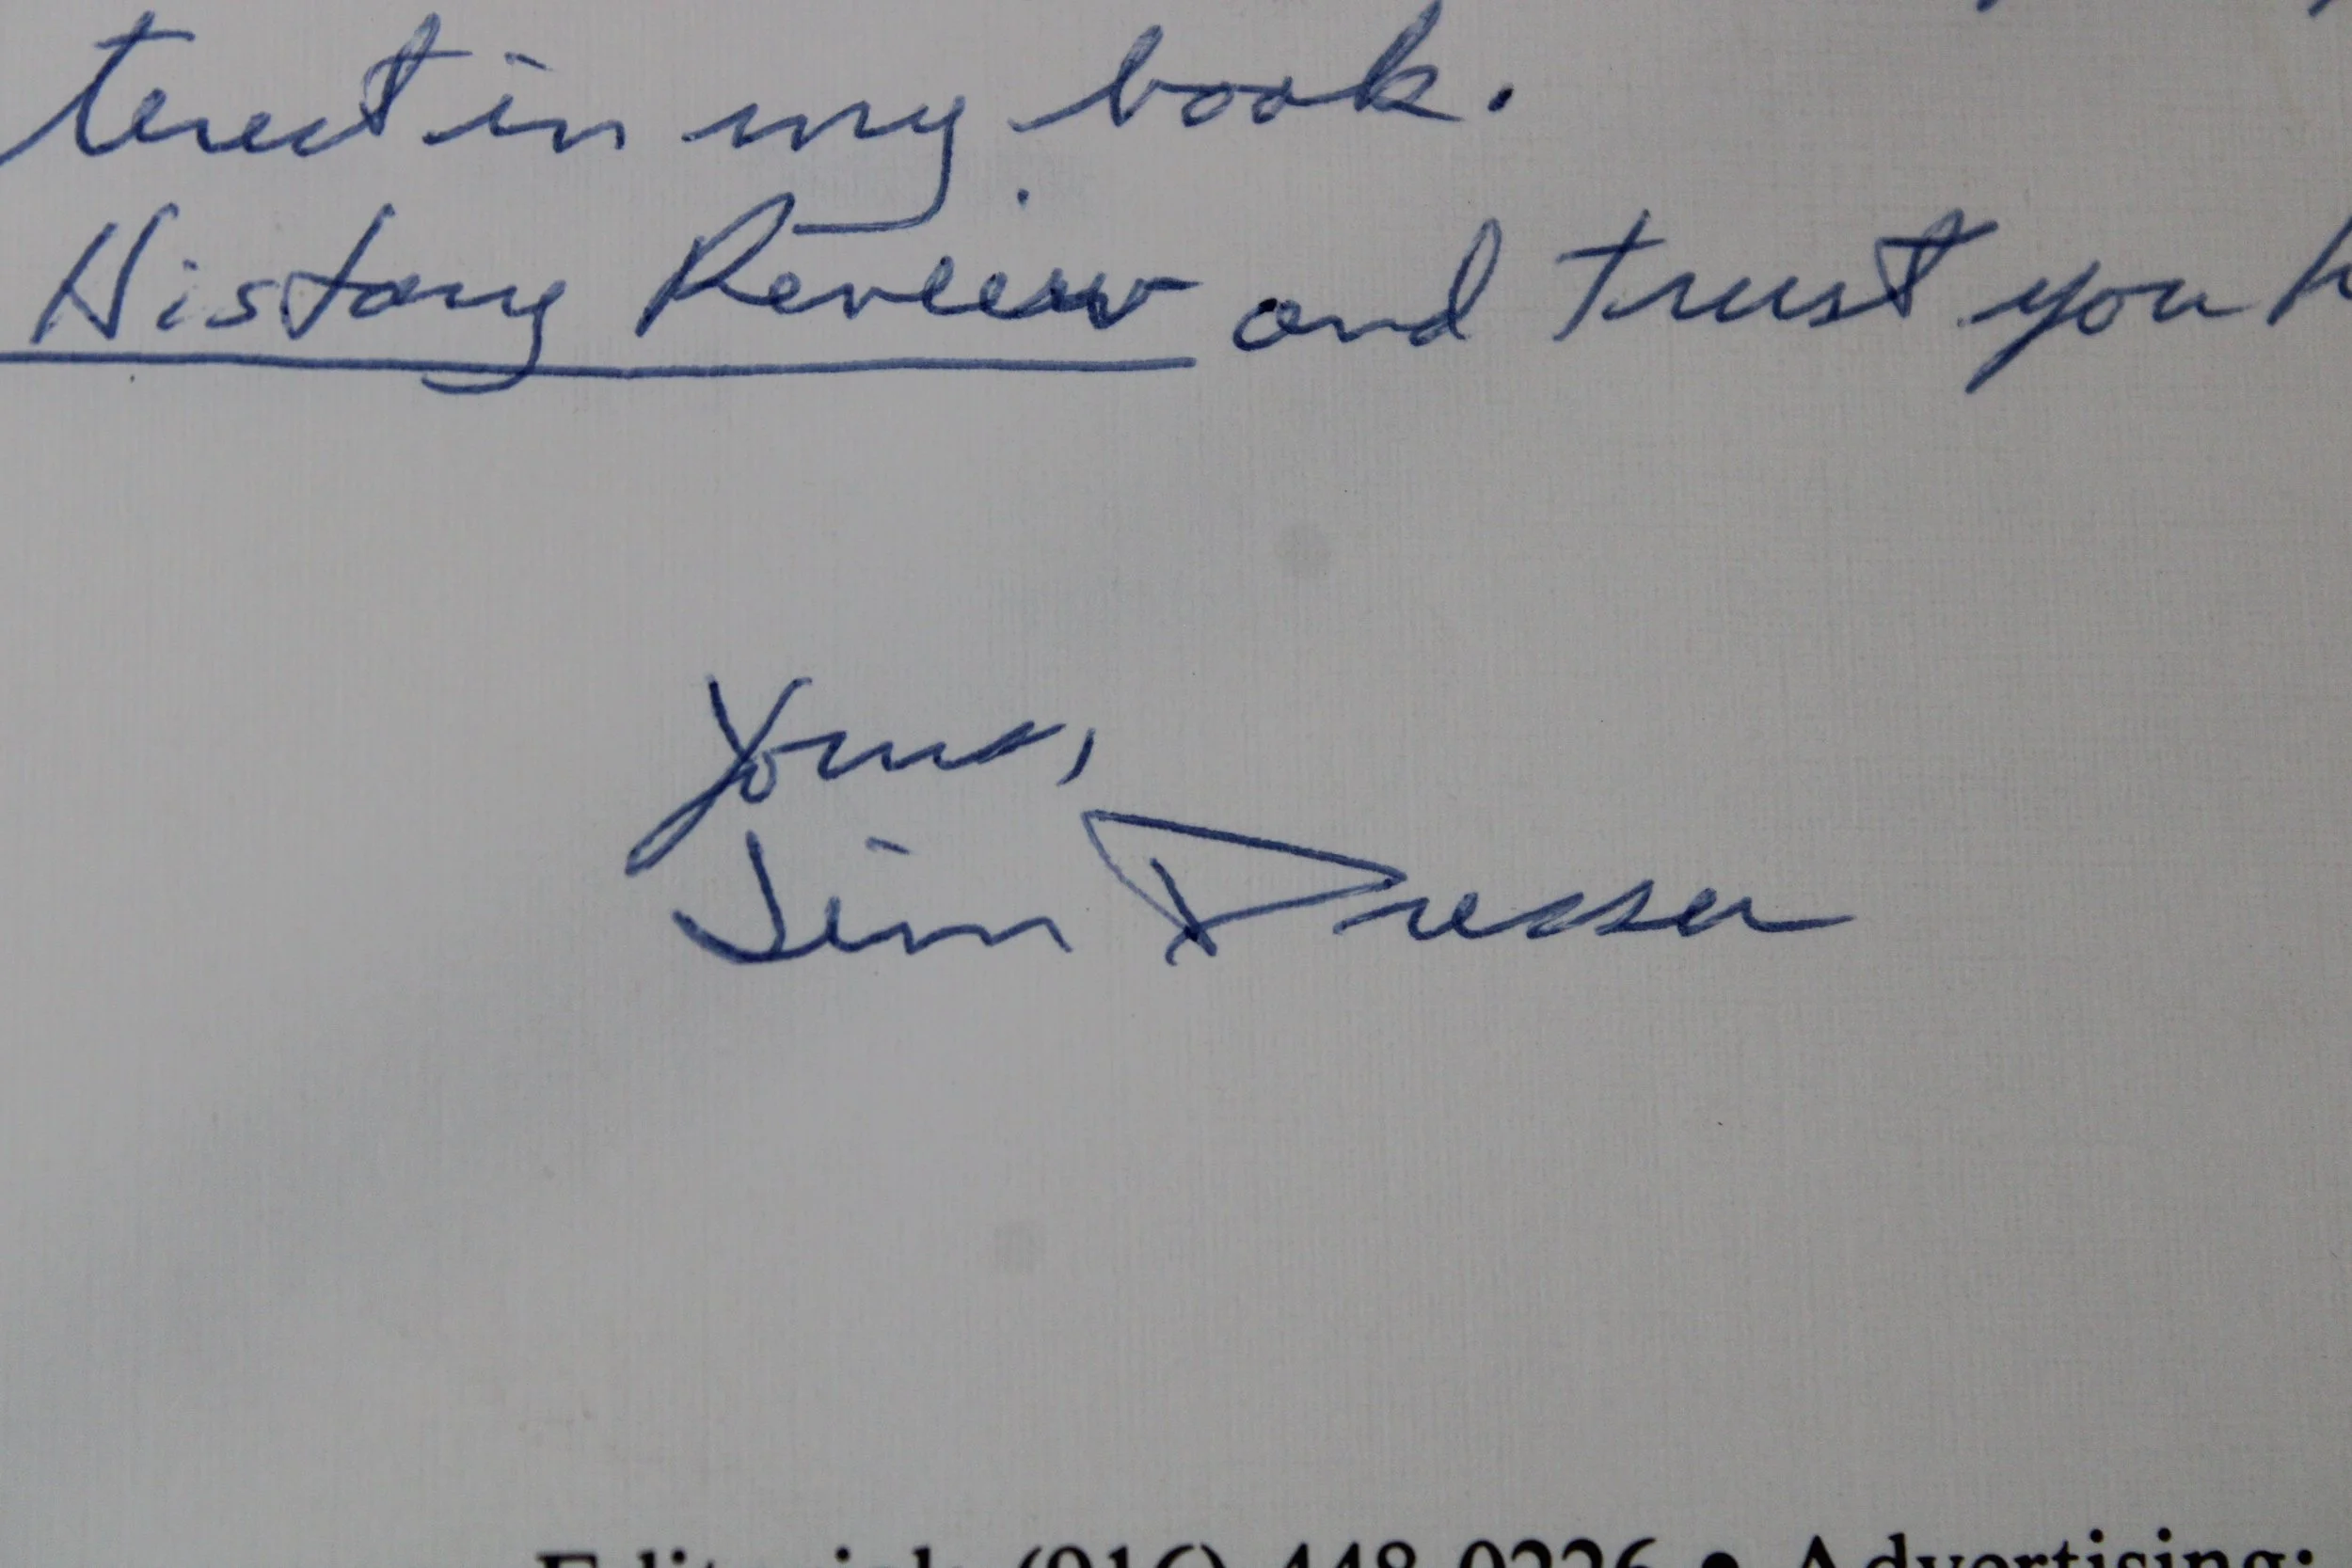 terest in my book.
History Review and trust you h
Yours,
Jim Dresser
Editorial: (916) 448-0226 • Advertising: